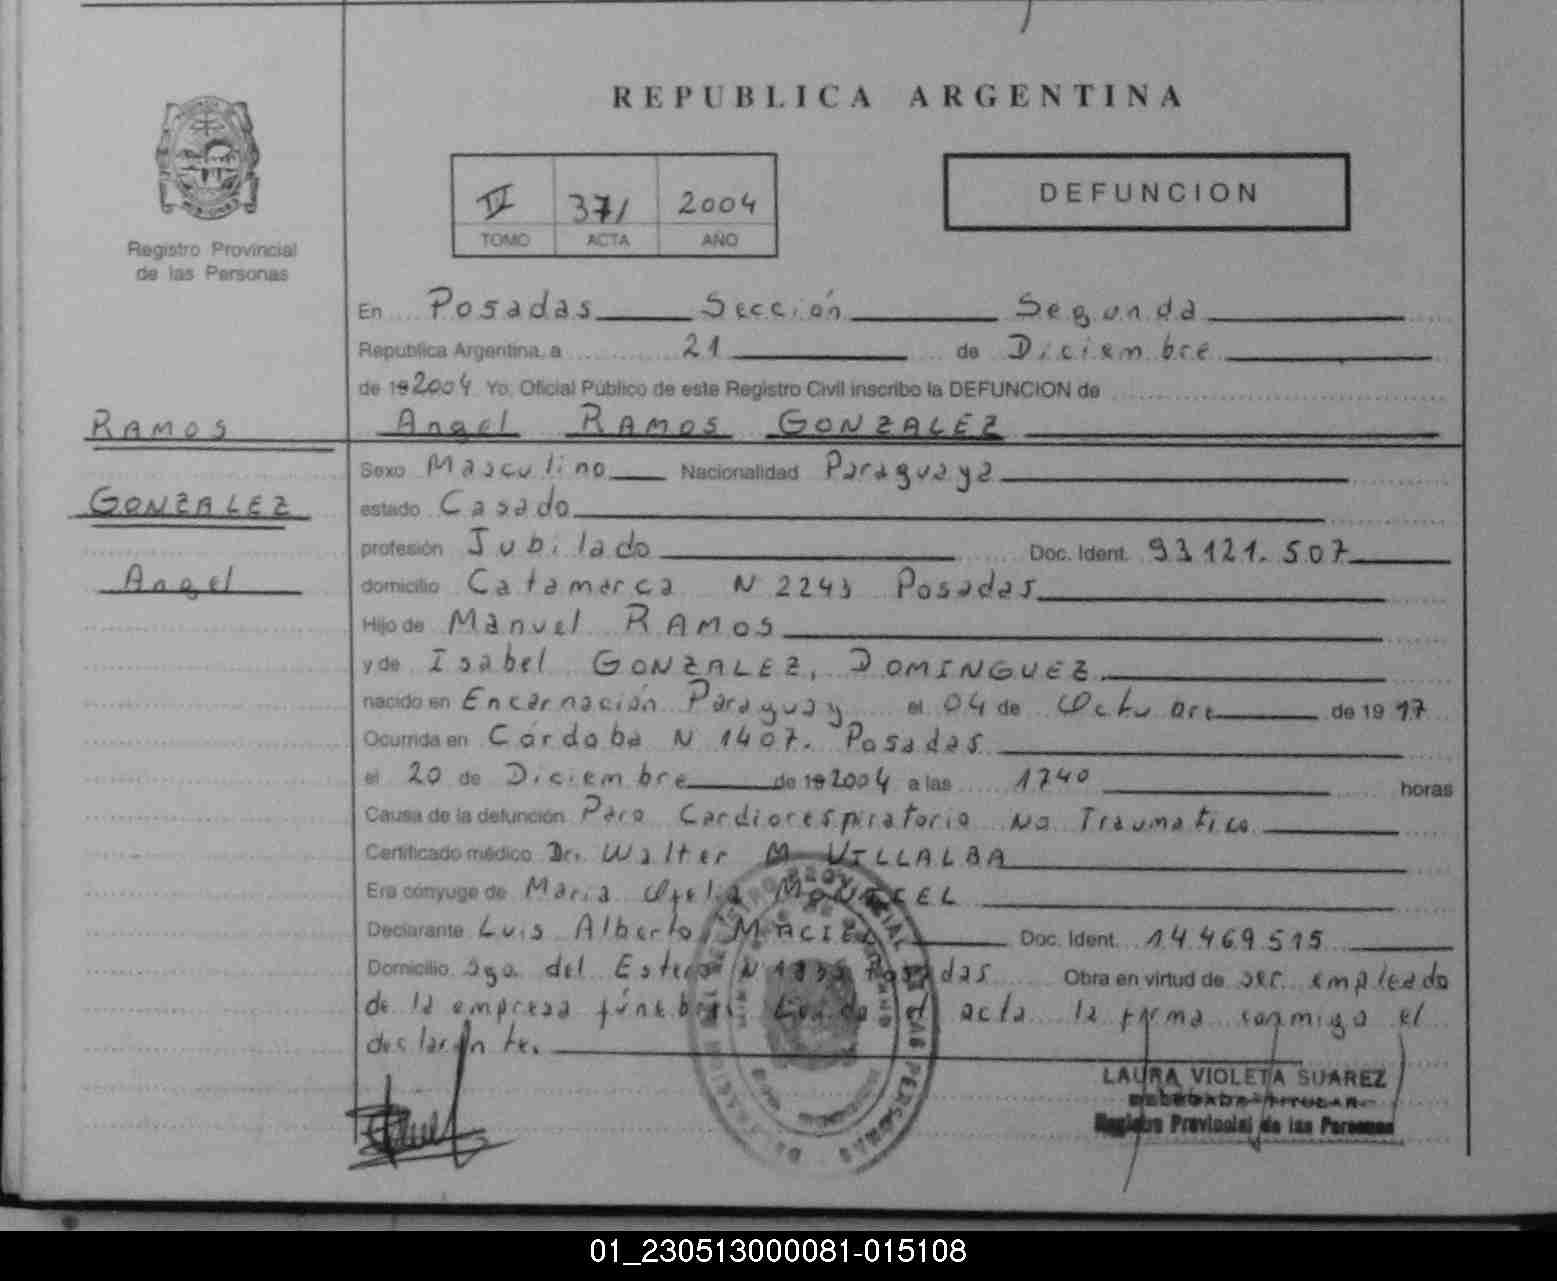 REPUBLICA ARGENTINA
II 371 2004
TOMO ACTA AÑO
DEFUNCION
Registro Provincial
de las Personas
En Posadas Sección Segunda
Republica Argentina, a 21 de Diciembre
de 19 2004 Yo, Oficial Público de este Registro Civil inscribo la DEFUNCION de
RAMOS
GONZALEZ
Angel
Angel RAMOS GONZALEZ
Sexo Masculino Nacionalidad Paraguaya
estado Casado
profesión Jubilado Doc. Ident. 93121.507
domicilio Catamarca N 2243 Posadas
Hijo de Manuel RAMOS
y de Isabel GONZALEZ, DOMINGUEZ
nacido en Encarnación Paraguay el 04 de Octubre de 19 17
Ocurrida en Córdoba N 1407. Posadas
el 20 de Diciembre de 19 2004 a las 1740 horas
Causa de la defunción Paro Cardiorespiratorio No Traumatico
Certificado médico Dr. Walter M VILLALBA
Era cónyuge de Maria Ofelia
Declarante Luis Alberto MACIEL Doc. Ident. 14.469.515
Domicilio Sgo. del Estero N Posadas Obra en virtud de ser empleado
de la empresa fúnebre. el acta la firma conmigo el
declarante.
LAURA VIOLETA SUAREZ
DELEGADA TITULAR
Registro Provincial de las Personas
01_230513000081-015108